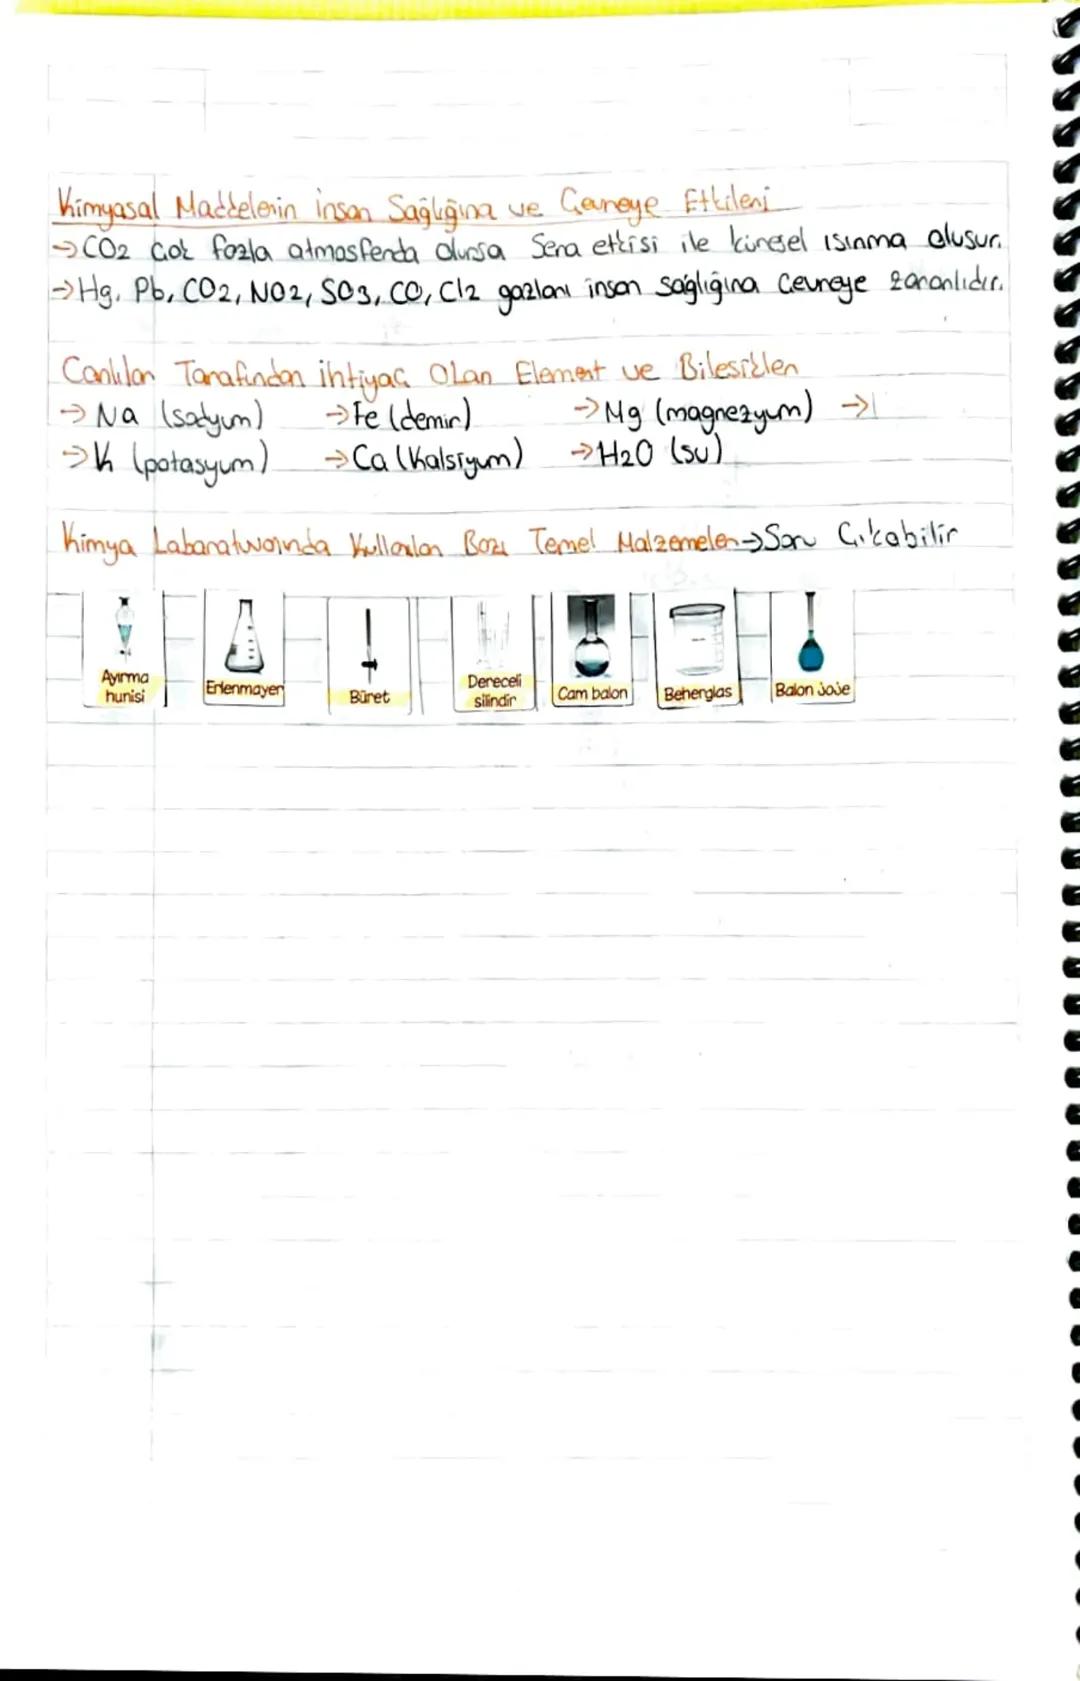 Kimyasal Maddelerin İnsan Sağlığına ve Çevreye Etkileri
→ CO2 çok fazla atmosferda olursa Sera etkisi ile küresel ısınma oluşur.
→ Hg, Pb, CO2, NO2, SO3, CO, Cl2 gazları insan sağlığına çevreye zararlıdır.
Canlılar Tarafından ihtiyaç Olan Element ve Bileşikler
→ Na (sodyum) → Fe (demir) → Mg (magnezyum) →
→ K (potasyum) → Ca (Kalsiyum) → H2O (su)
Kimya Labaratuvarında Kullanılan Bazı Temel Malzemeler → Soru Çıkabilir
Ayırma hunisi
Erlenmayer
Büret
Dereceli silindir
Cam balon
Beherglas
Balon joje